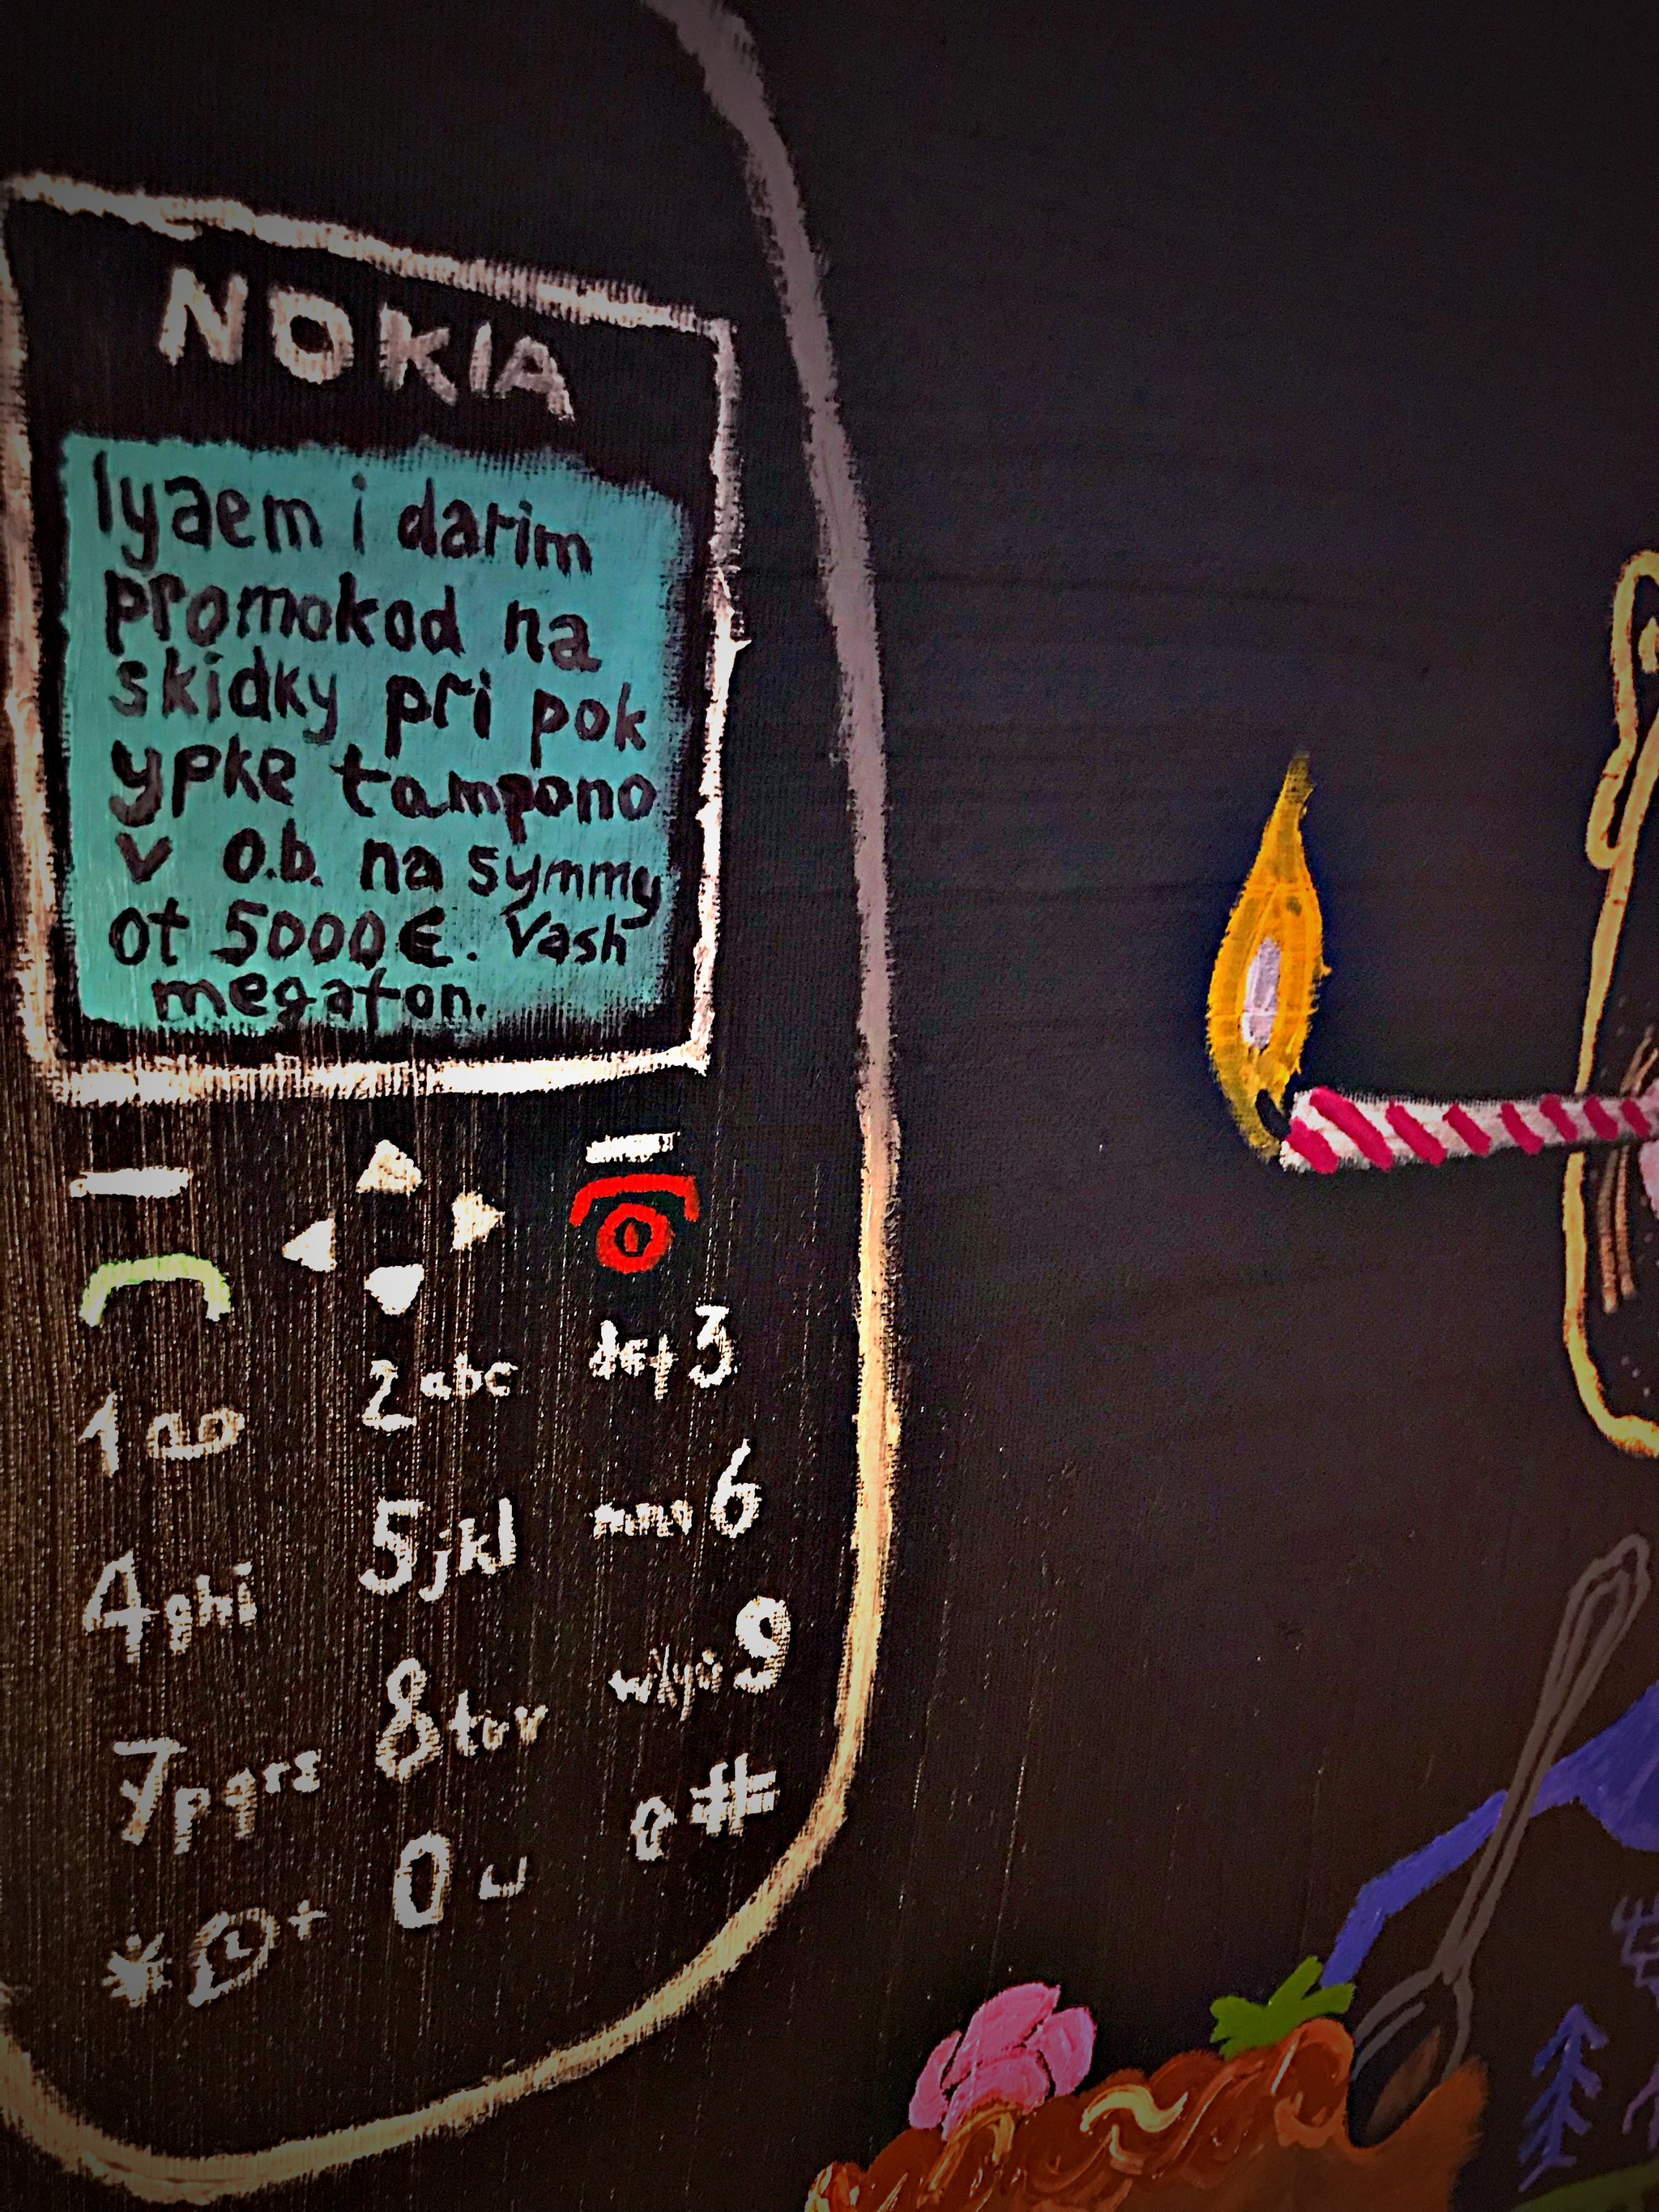 NOKIA
lyaem i darim
promokod na
skidky pri pok
ypke tampono
v o.b. na symmy
ot 5000€. Vash
megafon.
2 abc
def 3
1
5 jkl
mno 6
4 ghi
8 tuv
wxyz 9
7 pqrs
0
#
* +